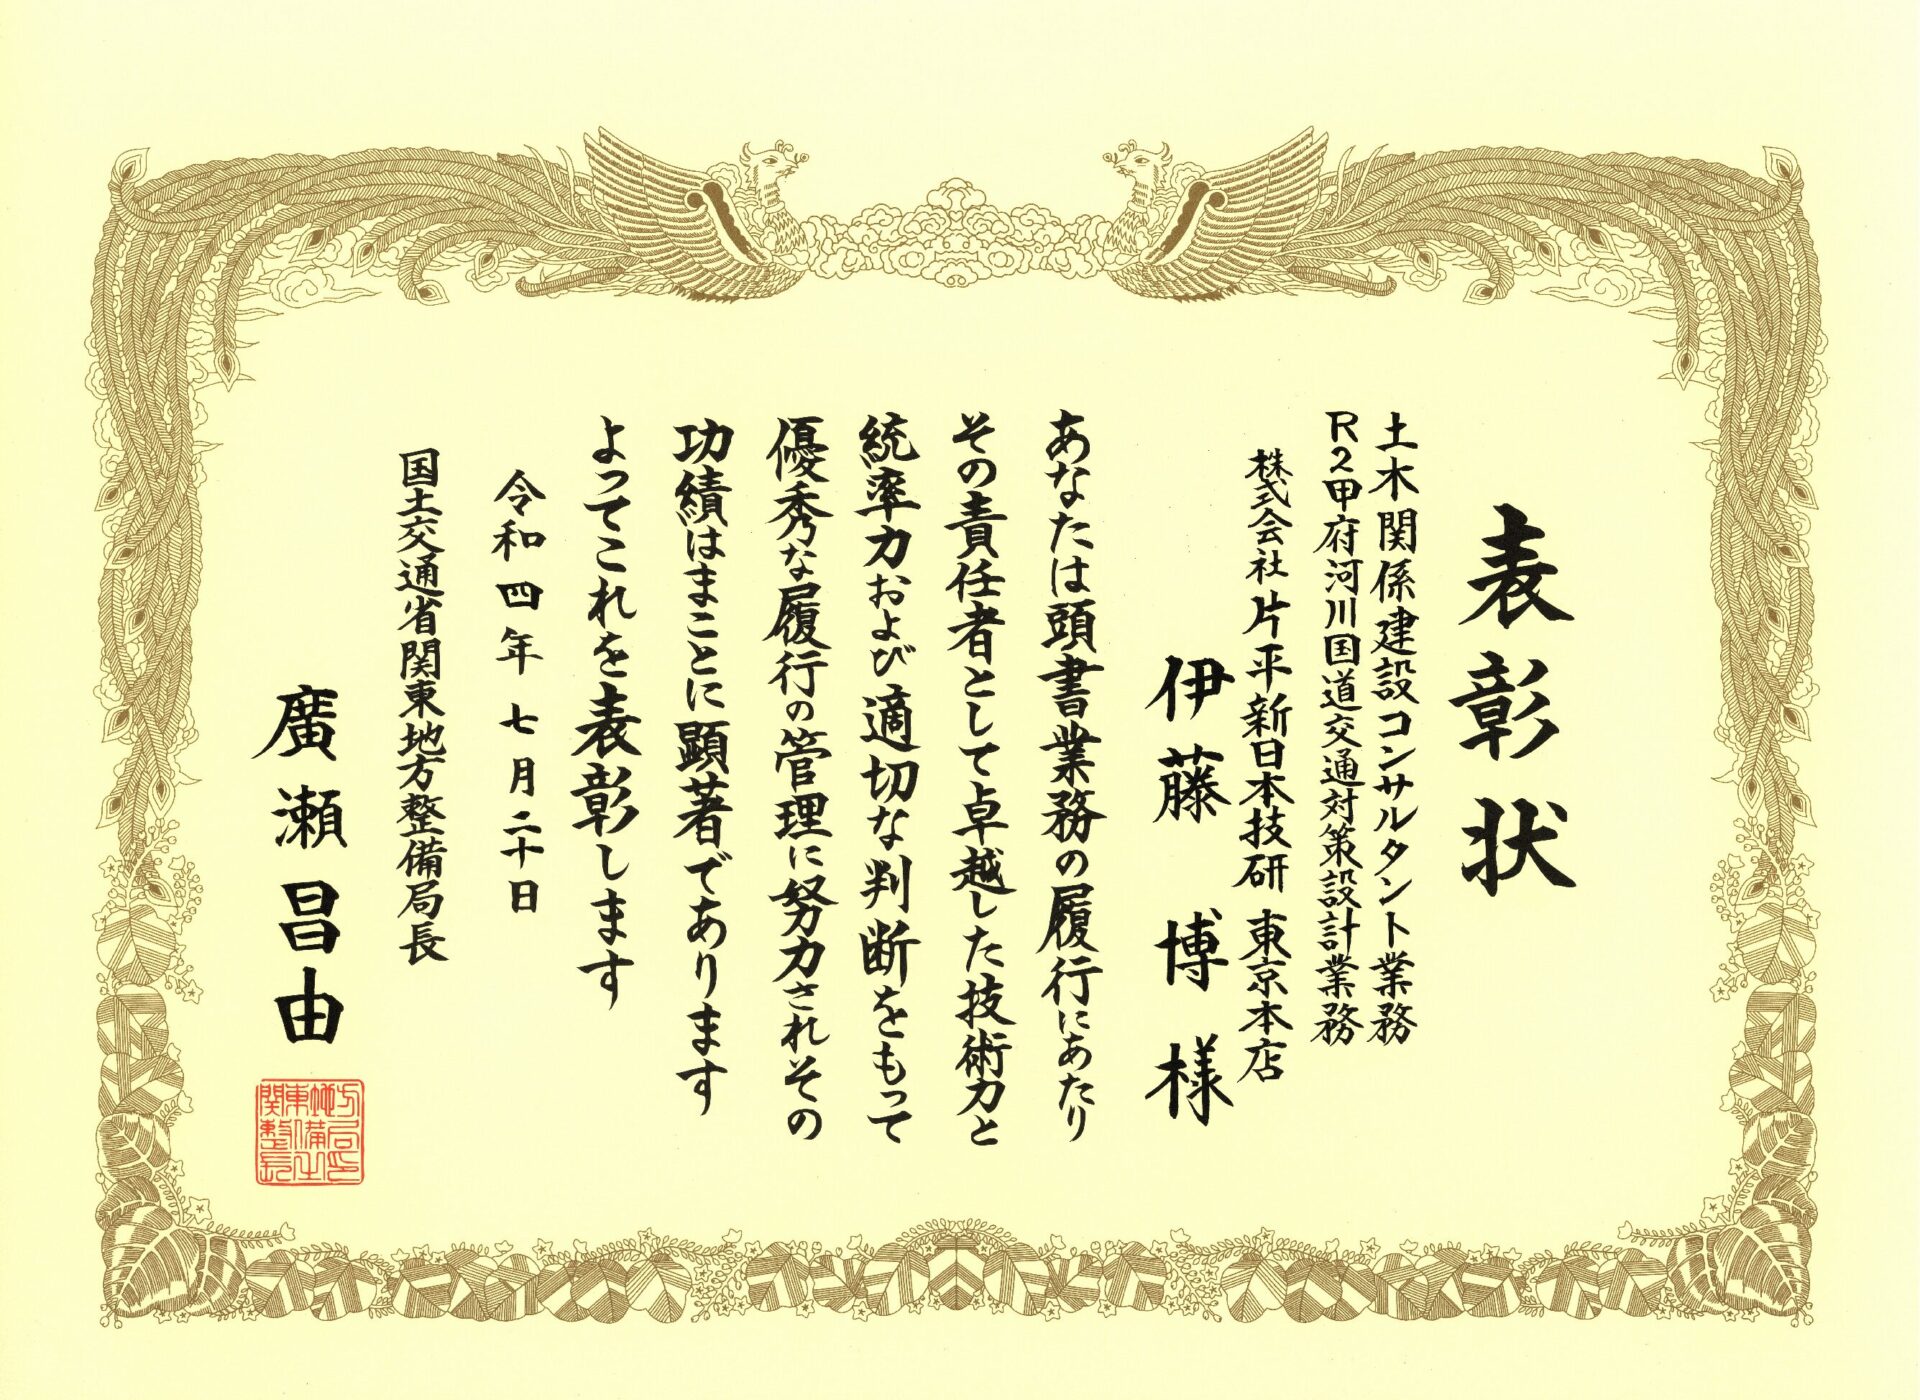 表彰状
土木関係建設コンサルタント業務
R2甲府河川国道交通対策設計業務
株式会社片平新日本技研 東京本店
伊藤 博 様
あなたは頭書業務の履行にあたり
その責任者として卓越した技術力と
統率力および適切な判断をもって
優秀な履行の管理に努力されその
功績はまことに顕著であります
よってこれを表彰します
令和四年七月二十日
国土交通省関東地方整備局長
廣瀬昌由